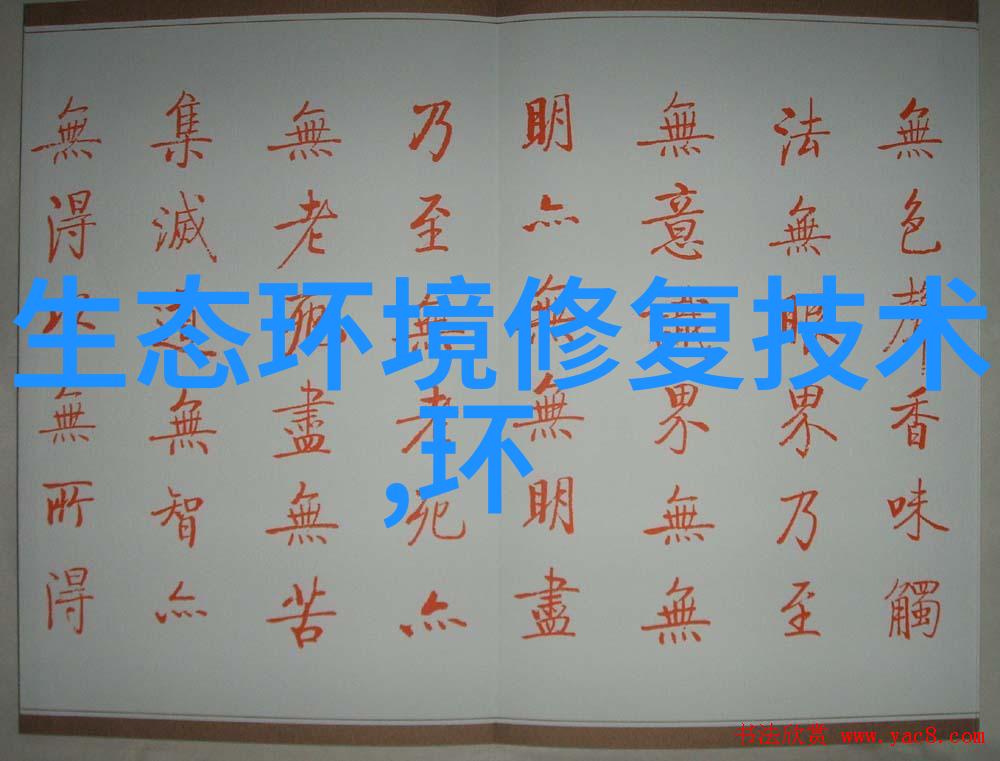 無色聲香味觸
法無眼界乃至
無意識界無無
明亦無無明盡
乃至無老死亦
無老死盡無苦
集滅道無智亦
無得以無所得
生态环境修复技术
,环
书法欣赏 www.yac8.com